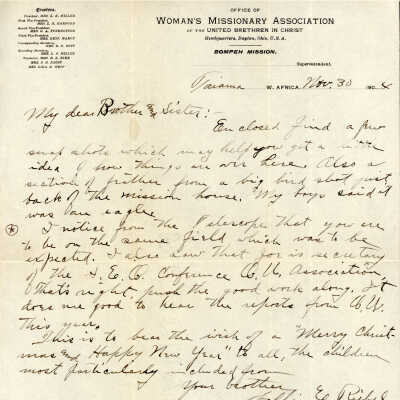 OFFICE OF
WOMAN'S MISSIONARY ASSOCIATION
OF THE UNITED BRETHREN IN CHRIST
Headquarters, Dayton, Ohio, U.S.A.
ROMPEH MISSION.
Superintendent.
Trustees.
W. AFRICA, Nov. 30 1904
My dear Brother and Sister:-
Enclosed find a few
snap shots which may help you get a
idea of how things are over here. Also a
section of feather from a big bird shot just
back of the mission house. My boys said it
was an eagle.
I notice from the Telescope that you are
to be on the same field which was to be
expected. I also saw that is secretary
of the Conference C.U. Association,
That's right, push the good work along. It
does me good to hear the reports from
this year.
This is to bear the wish of a "Merry Christ-
mas and Happy New Year" to all, the children
most particularly included from
Your brother